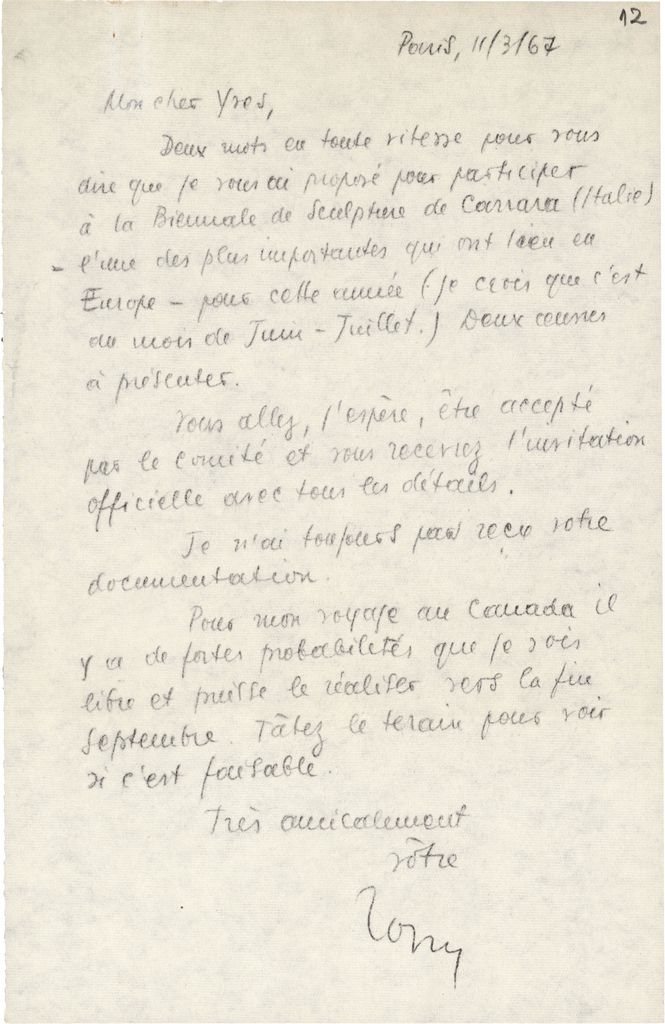 12
Paris, 11/3/67
Mon cher Yves,
Deux mots en toute vitesse pour vous
dire que je vous ai proposé pour participer
à la Biennale de Sculpture de Carrara (Italie)
- l'une des plus importantes qui ont lieu en
Europe - pour cette année (je crois que c'est
au mois de Juin - Juillet.) Deux œuvres
à présenter.
Vous allez, j'espère, être accepté
par le comité et vous recevrez l'invitation
officielle avec tous les détails.
Je n'ai toujours pas reçu votre
documentation.
Pour mon voyage au Canada il
y a de fortes probabilités que je sois
libre et puisse le réaliser vers la fin
Septembre. Tâtez le terain pour voir
si c'est faisable.
Très amicalement
vôtre